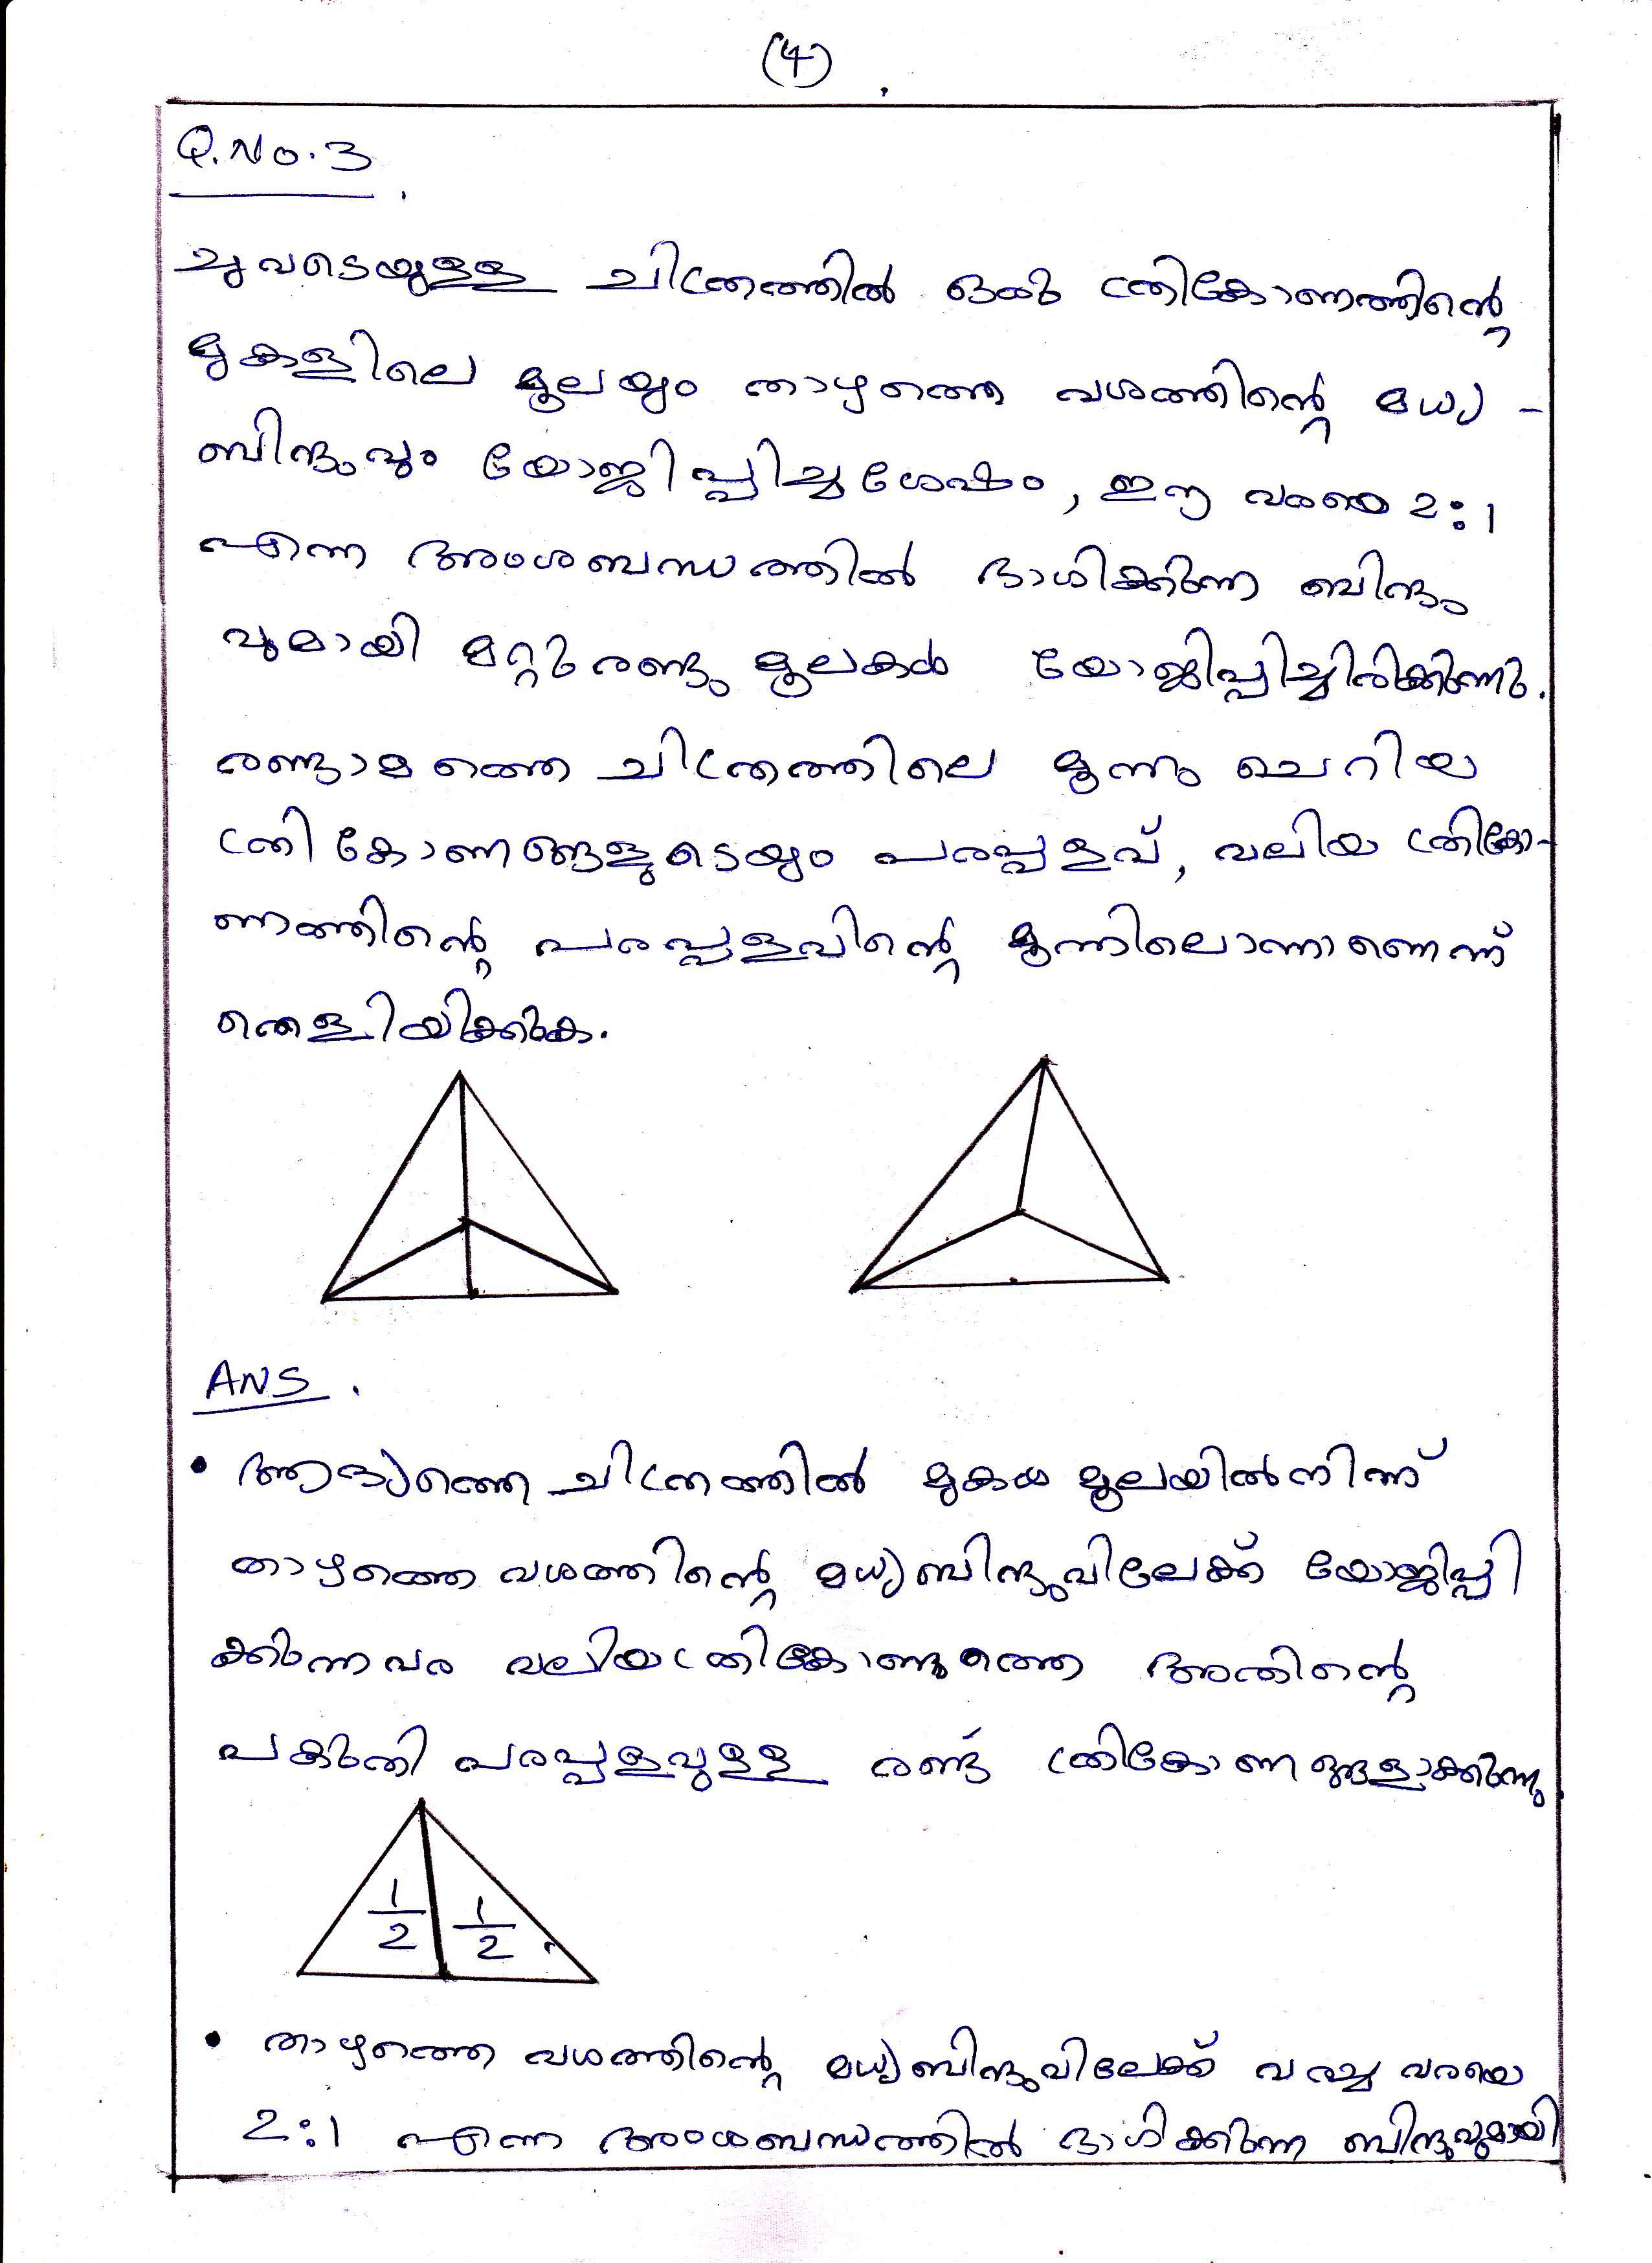 (4)
Q.No.3
ചുവടെയുള്ള ചിത്രത്തിൽ ഒരു ത്രികോണത്തിന്റെ
മുകളിലെ മൂലയും താഴത്തെ വശത്തിന്റെ മധ്യ-
ബിന്ദുവും യോജിപ്പിച്ചശേഷം, ഈ വരയെ 2:1
എന്ന അംശബന്ധത്തിൽ ഭാഗിക്കുന്ന ബിന്ദു
വുമായി മറ്റു രണ്ടു മൂലകൾ യോജിപ്പിച്ചിരിക്കുന്നു.
രണ്ടാമത്തെ ചിത്രത്തിലെ മൂന്നു ചെറിയ
ത്രികോണങ്ങളുടെയും പരപ്പളവ്, വലിയ ത്രികോ-
ണത്തിന്റെ പരപ്പളവിന്റെ മൂന്നിലൊന്നാണെന്ന്
തെളിയിക്കുക.
ANS.
• ആദ്യത്തെ ചിത്രത്തിൽ മുകൾ മൂലയിൽ നിന്ന്
താഴത്തെ വശത്തിന്റെ മധ്യബിന്ദുവിലേക്ക് യോജിപ്പി
ക്കുന്ന വര വലിയ ത്രികോണത്തെ അതിന്റെ
പകുതി പരപ്പളവുള്ള രണ്ട് ത്രികോണങ്ങളാക്കുന്നു.
1/2 1/2
• താഴത്തെ വശത്തിന്റെ മധ്യബിന്ദുവിലേക്ക് വരച്ച വരയെ
2:1 എന്ന അംശബന്ധത്തിൽ ഭാഗിക്കുന്ന ബിന്ദുവുമായി